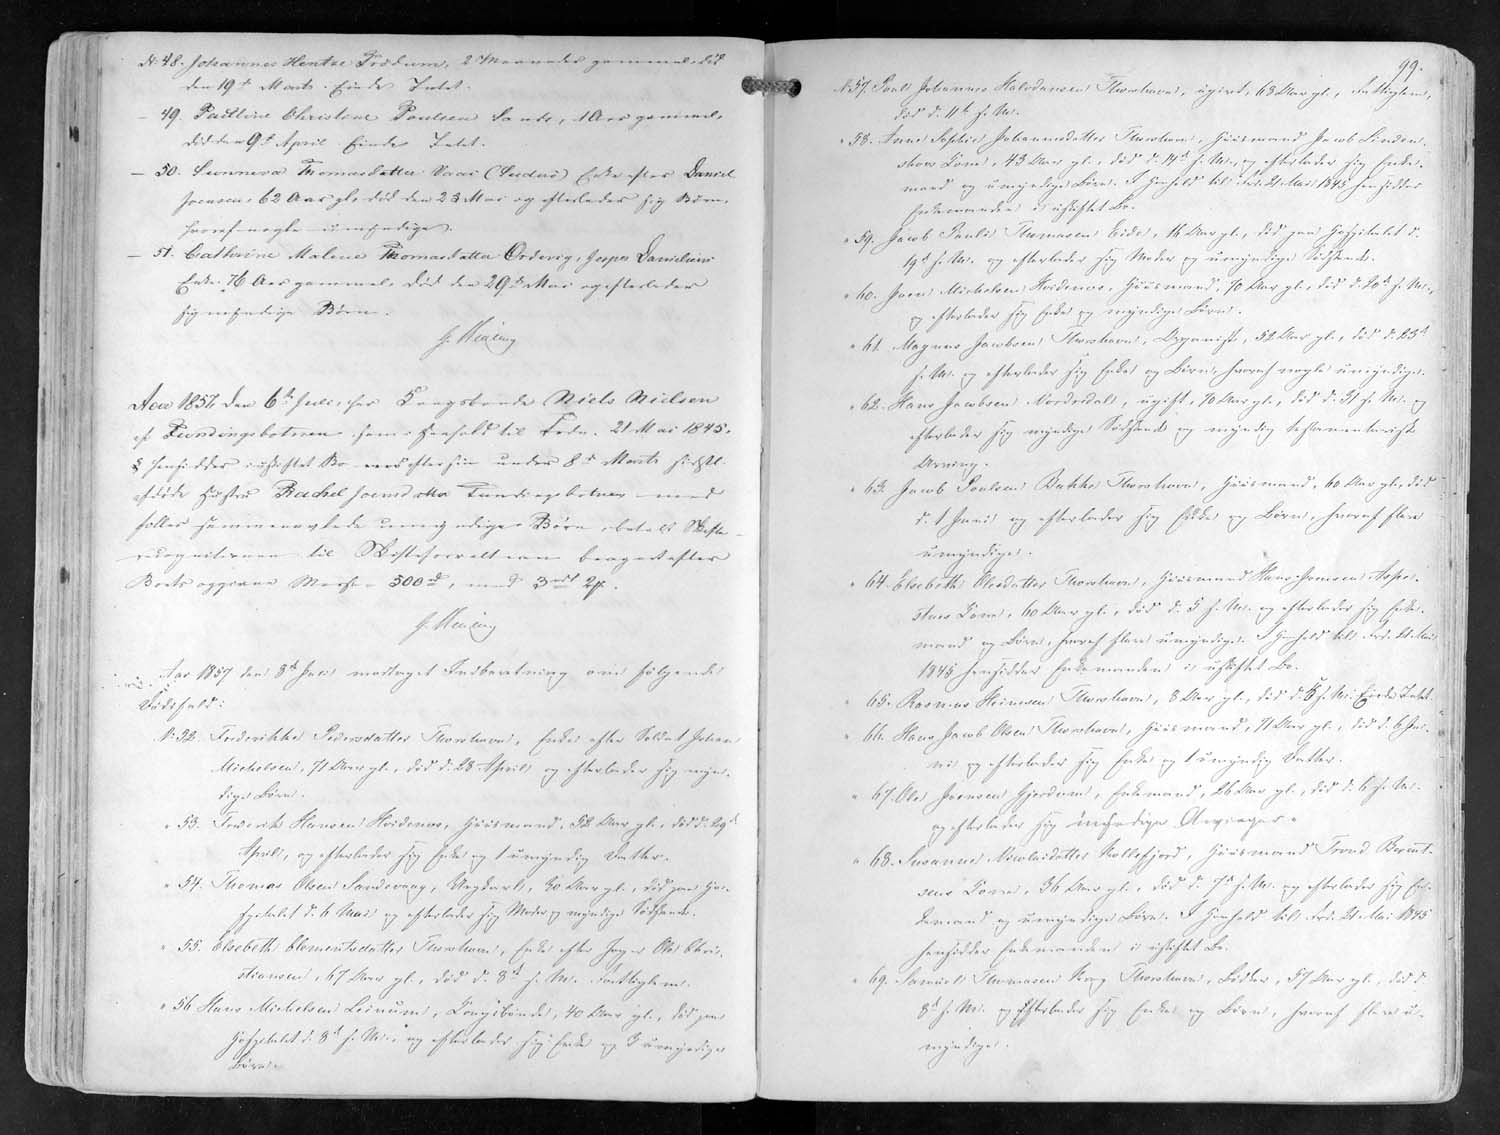 N: 48. Johannes Hentze Trødum, 2 Maaneder gammel, død
den 19de Marts. Eiede Intet.
— 49. Paulline Christene Poulsen Sand, 1 Aar gammel,
død den 9de April Eiede Intet.
— 50. Sunneva Thomasdatter Vaai (Suderø) Enke efter Daniel
Joensen, 62 Aar gl. død den 23 Mai og efterlader sig Børn,
hvoraf nogle umyndige.
— 51. Cathrine Malene Thomasdatter Ordevig, Jesper Danielsens
Enke 76 Aar gammel, død den 29de Mai og efterlader
sig myndige Børn.
H. Müller
Aar 1857 den 6te Juli, har Kongsbonde Niels Nielsen
af Funningsbotnen som i Henhold til Frdn. 21 Mai 1845
§ hensidder i uskiftet Bo med efter sin under 8de Marts sidstl.
afdøde Hustru Rachel Joensdatter Funningsbotnen med
fælles sammenavlede umyndige Børn, betalt Skifte-
recognitionen til Skifteforvalteren beregnet efter
Boets opgivne Masse 500 rd, med 3 mrk 2 s.
Aar 1857 den 8de Juli modtaget Indberetning om følgende
Dødsfald:
N: 52. Frederikke Pedersdatter Thorshavn, Enke efter Soldat Johan
Michelsen, 71 Aar gl., død d. 28 April og efterlader sig myn-
dige Børn.
" 53. Frederik Hansen Hvidenæs, Huusmand, 52 Aar gl., død d. 29de
April, og efterlader sig Enke og 1 umyndig Datter.
" 54. Thomas Olsen Sandevaag, Ungkarl, 30 Aar gl., død paa Ho-
spitalet d. 6 Mai og efterlader sig Moder og myndige Sødskende.
" 55. Elsebeth Clementsdatter Thorshavn, Enke efter Ole Chris-
tiansen, 67 Aar gl., død d. 8de s. M. Fattiglem.
" 56 Hans Michelsen Leinum, Kongsbonde, 40 Aar gl., død paa
Hospitalet d. 8de s. M., og efterlader sig Enke og 3 umyndige
Børn.
99.
N 57. Poul Johannes Halvdansen Thorshavn, ugivt, 68 Aar gl., Fattiglem,
død d. 11te s. M.
" 58. Anne Sophie Johannesdatter Thorshavn, Huusmand Jacob Linden-
skovs Kone, 43 Aar gl., død d. 14de s. M., og efterlader sig Enke-
mand og umyndige Børn. I Henhold til Frd. 21 Mai 1845 hensidder
Enkemanden i uskiftet Bo.
" 59. Jacob Pauli Thomasen Eide, 16 Aar gl., død paa Hospitalet d.
19de s. M. og efterlader sig Moder og umyndige Sødskende.
" 60. Joen Michelsen Hvidenæs, Huusmand, 70 Aar gl., død d. 20de s. M.,
og efterlader sig Enke og myndige Børn.
" 61. Magnus Jacobsen Thorshavn, Organist, 52 Aar gl., død d. 23de
s. M. og efterlader sig Enke og Børn, hvoraf nogle umyndige.
" 62. Hans Jacobsen Nordredal, ugift, 70 Aar gl., død d. 31 s. M. og
efterlader sig myndige Sødskende og myndig testamentarisk
Arving.
" 63. Jacob Poulsen Bakke Thorshavn, Huusmand, 60 Aar gl., død
d. 1 Juni og efterlader sig Enke og Børn, hvoraf flere
umyndige.
" 64. Elsebeth Olesdatter Thorshavn, Huusmand Hans Joensen
Kone, 60 Aar gl., død d. 5 s. M. og efterlader sig Enke-
mand og Børn, hvoraf flere umyndige. I Henhold til Frd. 21 Mai
1845 hensidder Enkemanden i uskiftet Bo.
" 65. Rasmus Heinesen Thorshavn, 8 Aar gl., død d. 5 s. M. Eiede Intet.
" 66. Hans Jacob Olsen Thorshavn, Huusmand, 71 Aar gl., død d. 6 Ju-
ni og efterlader sig Enke og 1 umyndig Datter.
" 67. Ole Joensen Gjerdum, Enkemand, 86 Aar gl., død d. 6 s. M.
og efterlader sig myndige Arvinger.
" 68. Susanne Nicolaidatter Kollefjord, Huusmand Trond Berint-
sens Kone, 36 Aar gl., død d. 7de s. M. og efterlader sig En-
kemand og umyndige Børn. I Henhold til Frd. 21 Mai 1845
hensidder Enkemanden i uskiftet Bo.
" 69. Samuel Thomasen Krog Thorshavn, Bødker, 57 Aar gl., død d.
8de s. M. og efterlader sig Enke og Børn, hvoraf flere u-
myndige.